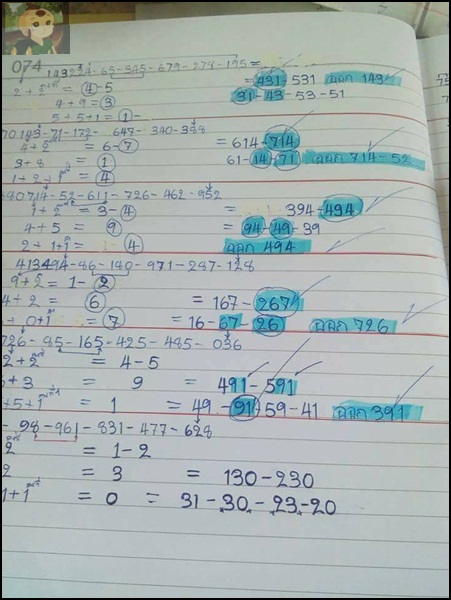 074
143224-65-345-679-278-195=
2+2 = 4-5 = 431-531 ออก 143
4+9 = 3 31-43-53-51
5+5+1 = 1-
70143-71-172- 647- 340-338
4+2 = 6-7 = 614-714
3+8 = 1 61-14-71 ออก 714-52
1+2+1 = 4
690714-52-611-726-462-952
1+2 = 3-4 = 394-494
4+5 = 9 = 94-49-39
2+1+1 = 4 ออก 494
413494-86-180-971-287-128
9+2 = 1-2
4+2 = 6 = 167-267
0+1 = 7 = 16-67-26 ออก 726
726-85-165-425-485-036
2+2 = 4-5
6+3 = 9 = 491-591
+5+1 = 1 = 49-91-59-41 ออก 391
- 98-961-831-477-628
2 = 1-2
2 = 3 = 130-230
1+1 = 0 = 31-30-23-20